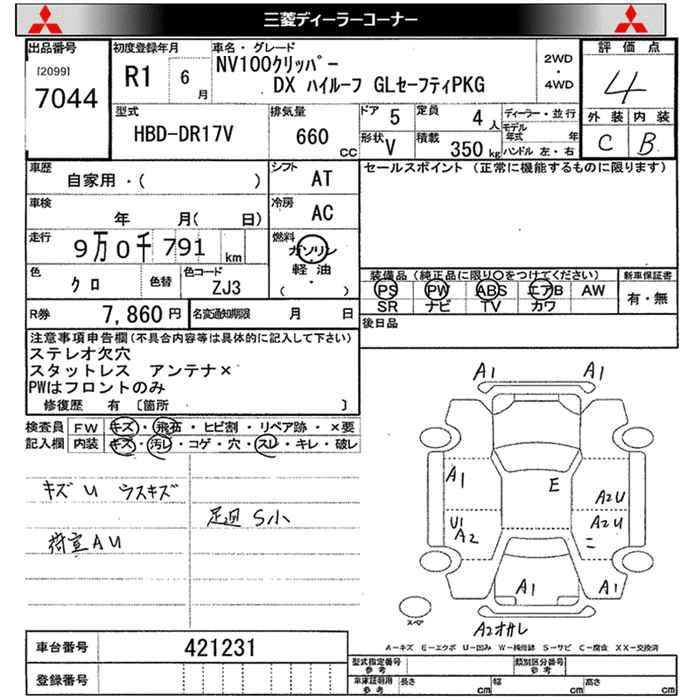 三菱ディーラーコーナー
出品番号
[2099]
7044
初度登録年月
R1 6月
車名・グレード
NV100クリッパー
DX ハイルーフ GLセーフティPKG
2WD
・
4WD
評価点
4
外装 内装
C B
型式
HBD-DR17V
排気量
660
CC
ドア 5
定員 4人
形状 V
積載 350kg
ディーラー・並行
モデル年式 年
ハンドル 左・右
車歴
自家用・( )
シフト AT
車検
年 月( 日)
冷房 AC
走行
9万0千791km
燃料
ガソリン
・
軽油
( )
色
クロ
色替
色コード
ZJ3
R券 7,860円
名変通知期限 月 日
セールスポイント(正常に機能するものに限ります)
装備品(純正品に限り〇をつけてください)
PS PW ABS エアB AW
SR ナビ TV カワ
新車保証書
有・無
後日品
注意事項申告欄(不具合内容等は具体的に記入して下さい)
ステレオ欠穴
スタットレス アンテナ×
PWはフロントのみ
修復歴 有 〔箇所 〕
検査員記入欄
FW キズ・飛石・ヒビ割・リペア跡・×要
内装 キズ・汚レ・コゲ・穴・スレ・キレ・破レ
キズ U ウスキズ
荷室AU
足廻 S小
A1
A1
A1
E
A2U
U1
A2
A2U
ニ
A1
A1
スペア
A2オサレ
A−キズ E−エクボ U−凹み W−補修跡 S−サビ C−腐食 XX−交換済
車台番号 421231
登録番号
型式指定番号
参考
類別区分番号
参考
車庫証明用
参考
長さ cm 幅 cm 高さ cm